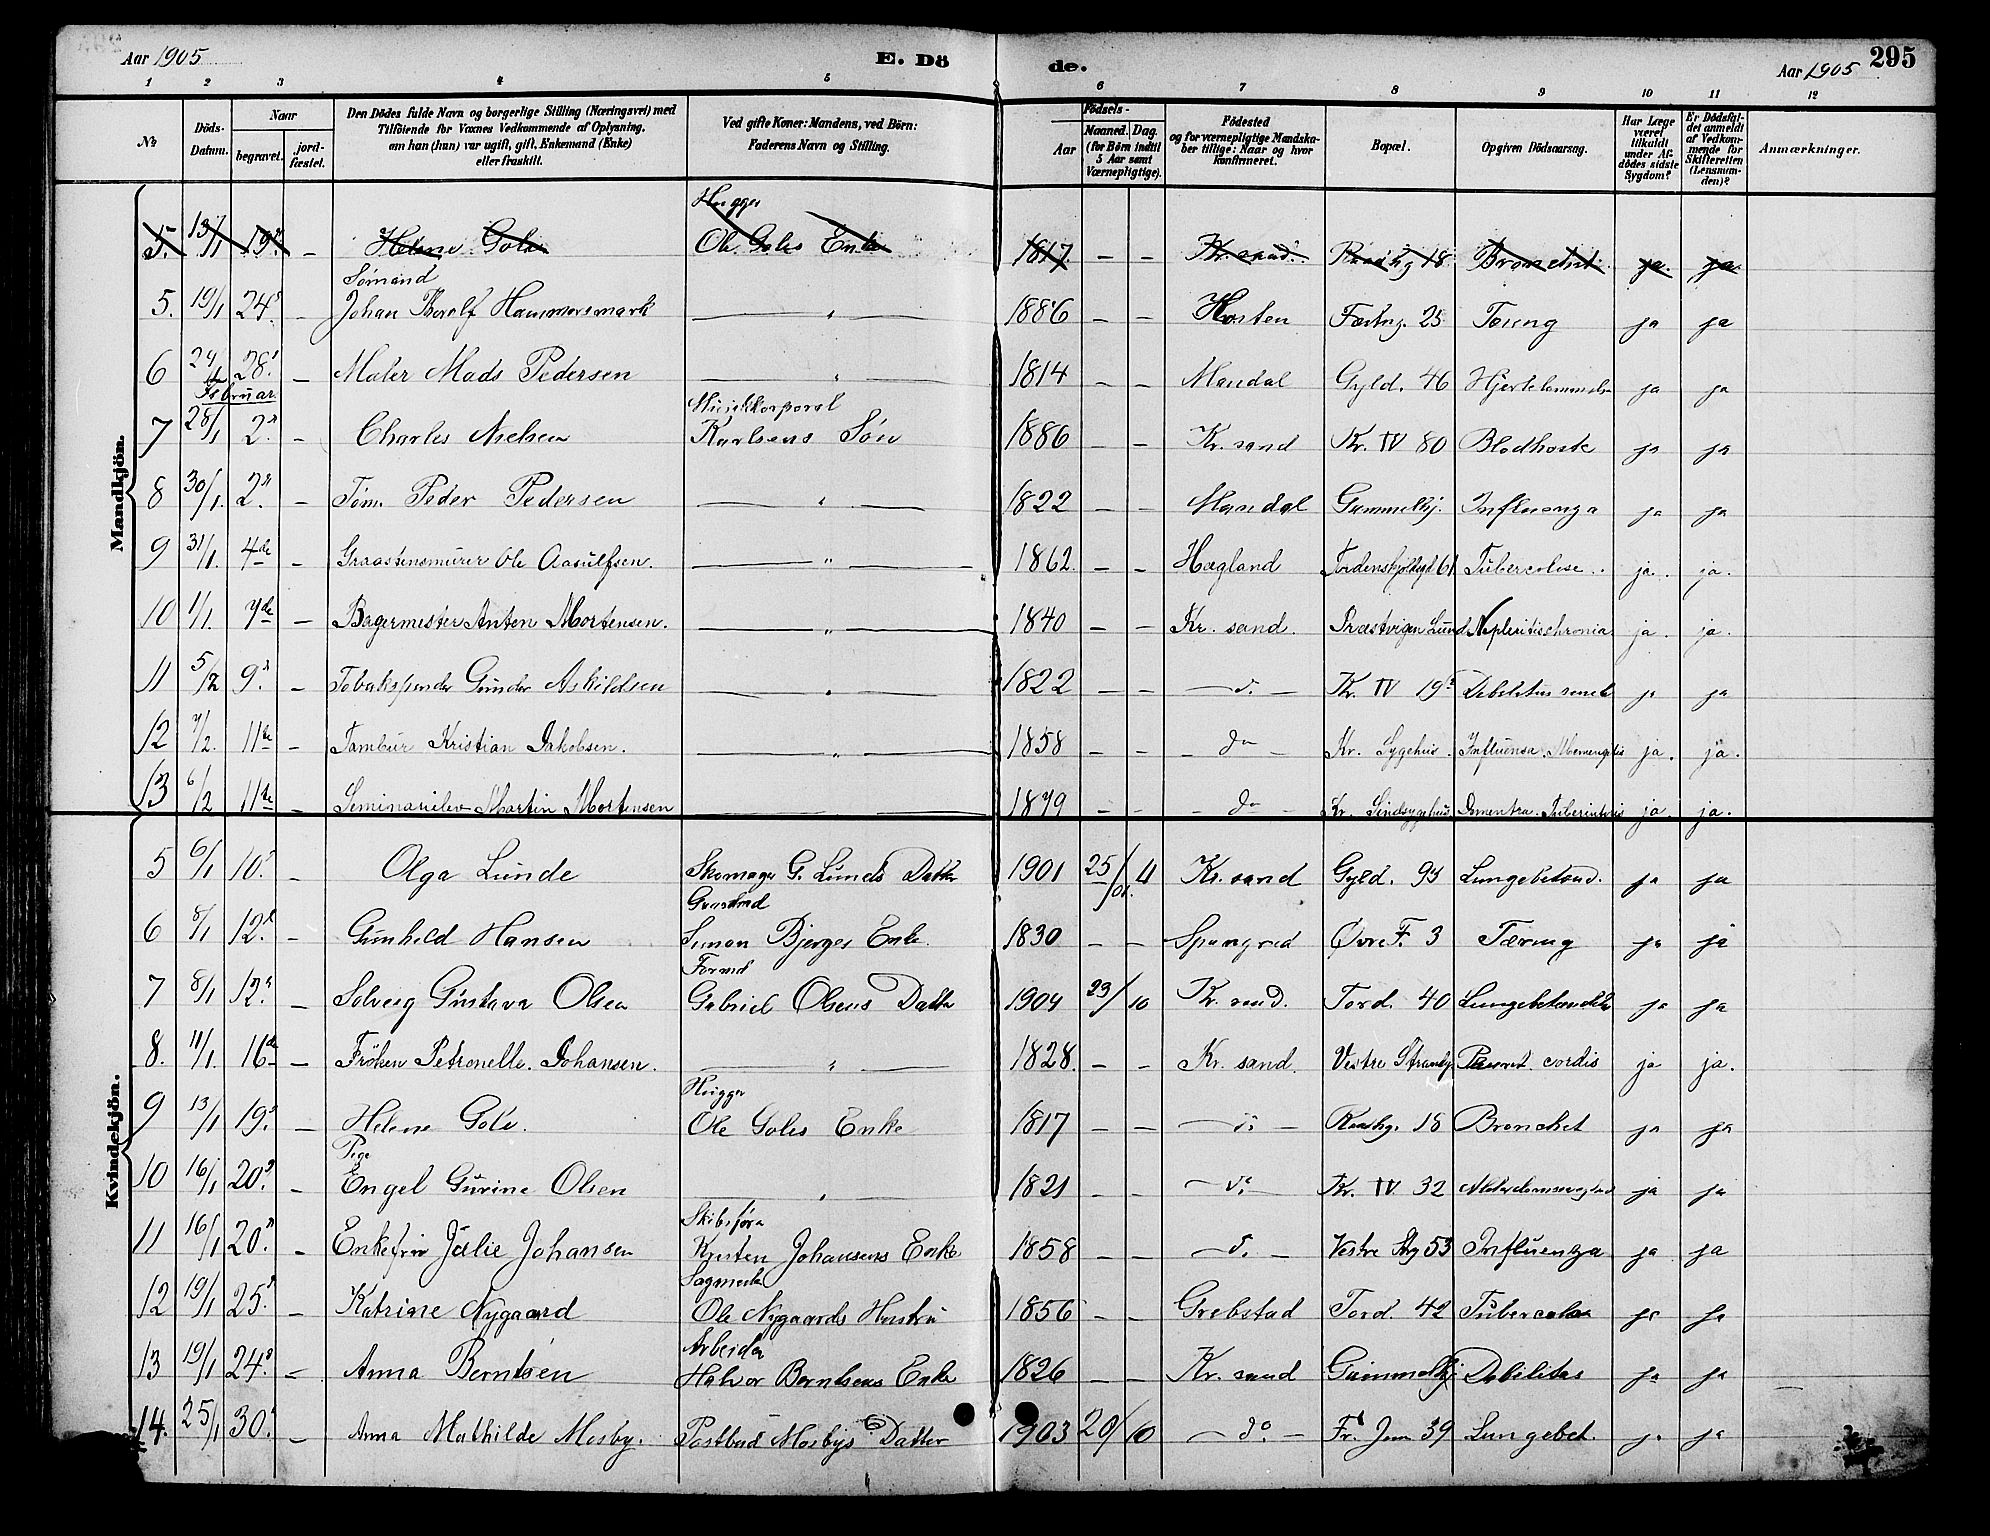 Aar 1905 E. Dö
de. Aar 1905 295
1 2 3 4 5 6 7 8 9 10 11 12
No Döds-Datum. Naar begravet. jord-fæstet. Den Dödes fulde Navn og borgerlige Stilling (Næringsvei) med Tilföiende for Voxnes Vedkommende af Oplysning, om han (hun) var ugift, gift, Enkemand (Enke) eller fraskilt. Ved gifte Koner: Mandens, ved Börn: Faderens Navn og Stilling. Födsels- Aar Maaned. Dag. (for Börn indtil 5 Aar samt Værnepligtige). Födested og for værnepligtige Mandskaber tillige: Naar og hvor konfirmeret. Bopæl. Opgiven Dödsaarsag. Har Læge været tilkaldt under Afdödes sidste Sygdom? Er Dödsfaldet anmeldt af Vedkommende for Skifteretten (Lensmanden)? Anmærkninger.
Mandkjön.
Hugger
5. 13/1 19. – Helene Gole Ole Goles Enke 1817. – – Kr.sand. 18 Bronchit. ja. ja.
Sømand
5. 19/1 24. – Johan Hammersmark – " – 1886 – – Fæstng. 25 Tæring ja ja
6 28. – Maler Mads Pedersen – " – 1814 – – Mandal Gyld. 46 ja ja
Februar. Musikkorporal
7 28/1 2. – Charles Nielsen Karlsens Søn 1886 – – Kr. sand Kr. IV 80 Blodhoste ja ja
8 30/1. 2. – Tøm. Peder Pedersen – " – 1822 – – Mandal Gammelhj. Influenza ja ja
9 31/1. 4de – Graastensmurer Ole Aasulfsen. – " – 1862. – – Hægland Tordenskjoldsgd 61 Tubercolose. ja. ja.
10 1/1. 7de – Bagermester Anton Mortensen. – " – 1840 – – Kr. sand. Præstvigen Lund ja. ja.
11 5/2 9. – Gunder Askildsen – " – 1822 – – – do. – Kr. IV 19 ja ja
12 7/2. 11te – Tambur Kristian Jakobsen. – " – 1858 – – – do – Kr. Sygehus. Influensa ja. ja.
13 6/2 11te – Seminarielev Martin Mortensen – 1879 – – – do – Kr. Sindsygehus ja. ja.
Kvindekjön.
5 6/1 10. – Olga Lunde Skomager G. Lunds Datter 1901 25/ Kr. sand Gyld. 93 Lungebetænd. ja ja
6 8/1 12. – Gunhild Hansen Simon Bjerges Enke. 1830 – – Øvre F. 3 Tæring ja ja
Formd
7 8/1 12. – Solveig Gustava Olsen Gabriel Olsens Datter 1904 23/10 Kr. sand. Tord. 40 ja ja
8. 11/1. 16de – Frøken Petronelle. Johansen. – " – 1828. – – Kr. sand. Vestre Strandg cordis ja ja.
Hugger
9 13/1 19. – Helene Gole. Ole Goles Enke 1817 – – – do. – 18 Bronchit ja ja
Pige
10 16/1 20. – Engel Gurine Olsen – " – 1821 – – – do. – Kr. IV 32 ja ja
Skibsføre
11 16/1 20. – Enkefru Julie Johansen Johansens Enke 1858 – – – do. – Vestre Stg 53 Influenza ja ja
12 19/1 25. – Katrine Nygaard Ole Nygaards Hustru 1856 – – Grebstad Tord. 42 ja ja
Arbeider
13 19/1 24. – Anna Berntsen Halvor Berntsens Enke 1826 – – Kr. sand Gammelhj Debilitas ja ja
14. 25/1 30. – Anna Mathilde Mosby. Postbud Mosbys Datter 1903 20/10 – do. – 39 Lungebet. ja ja